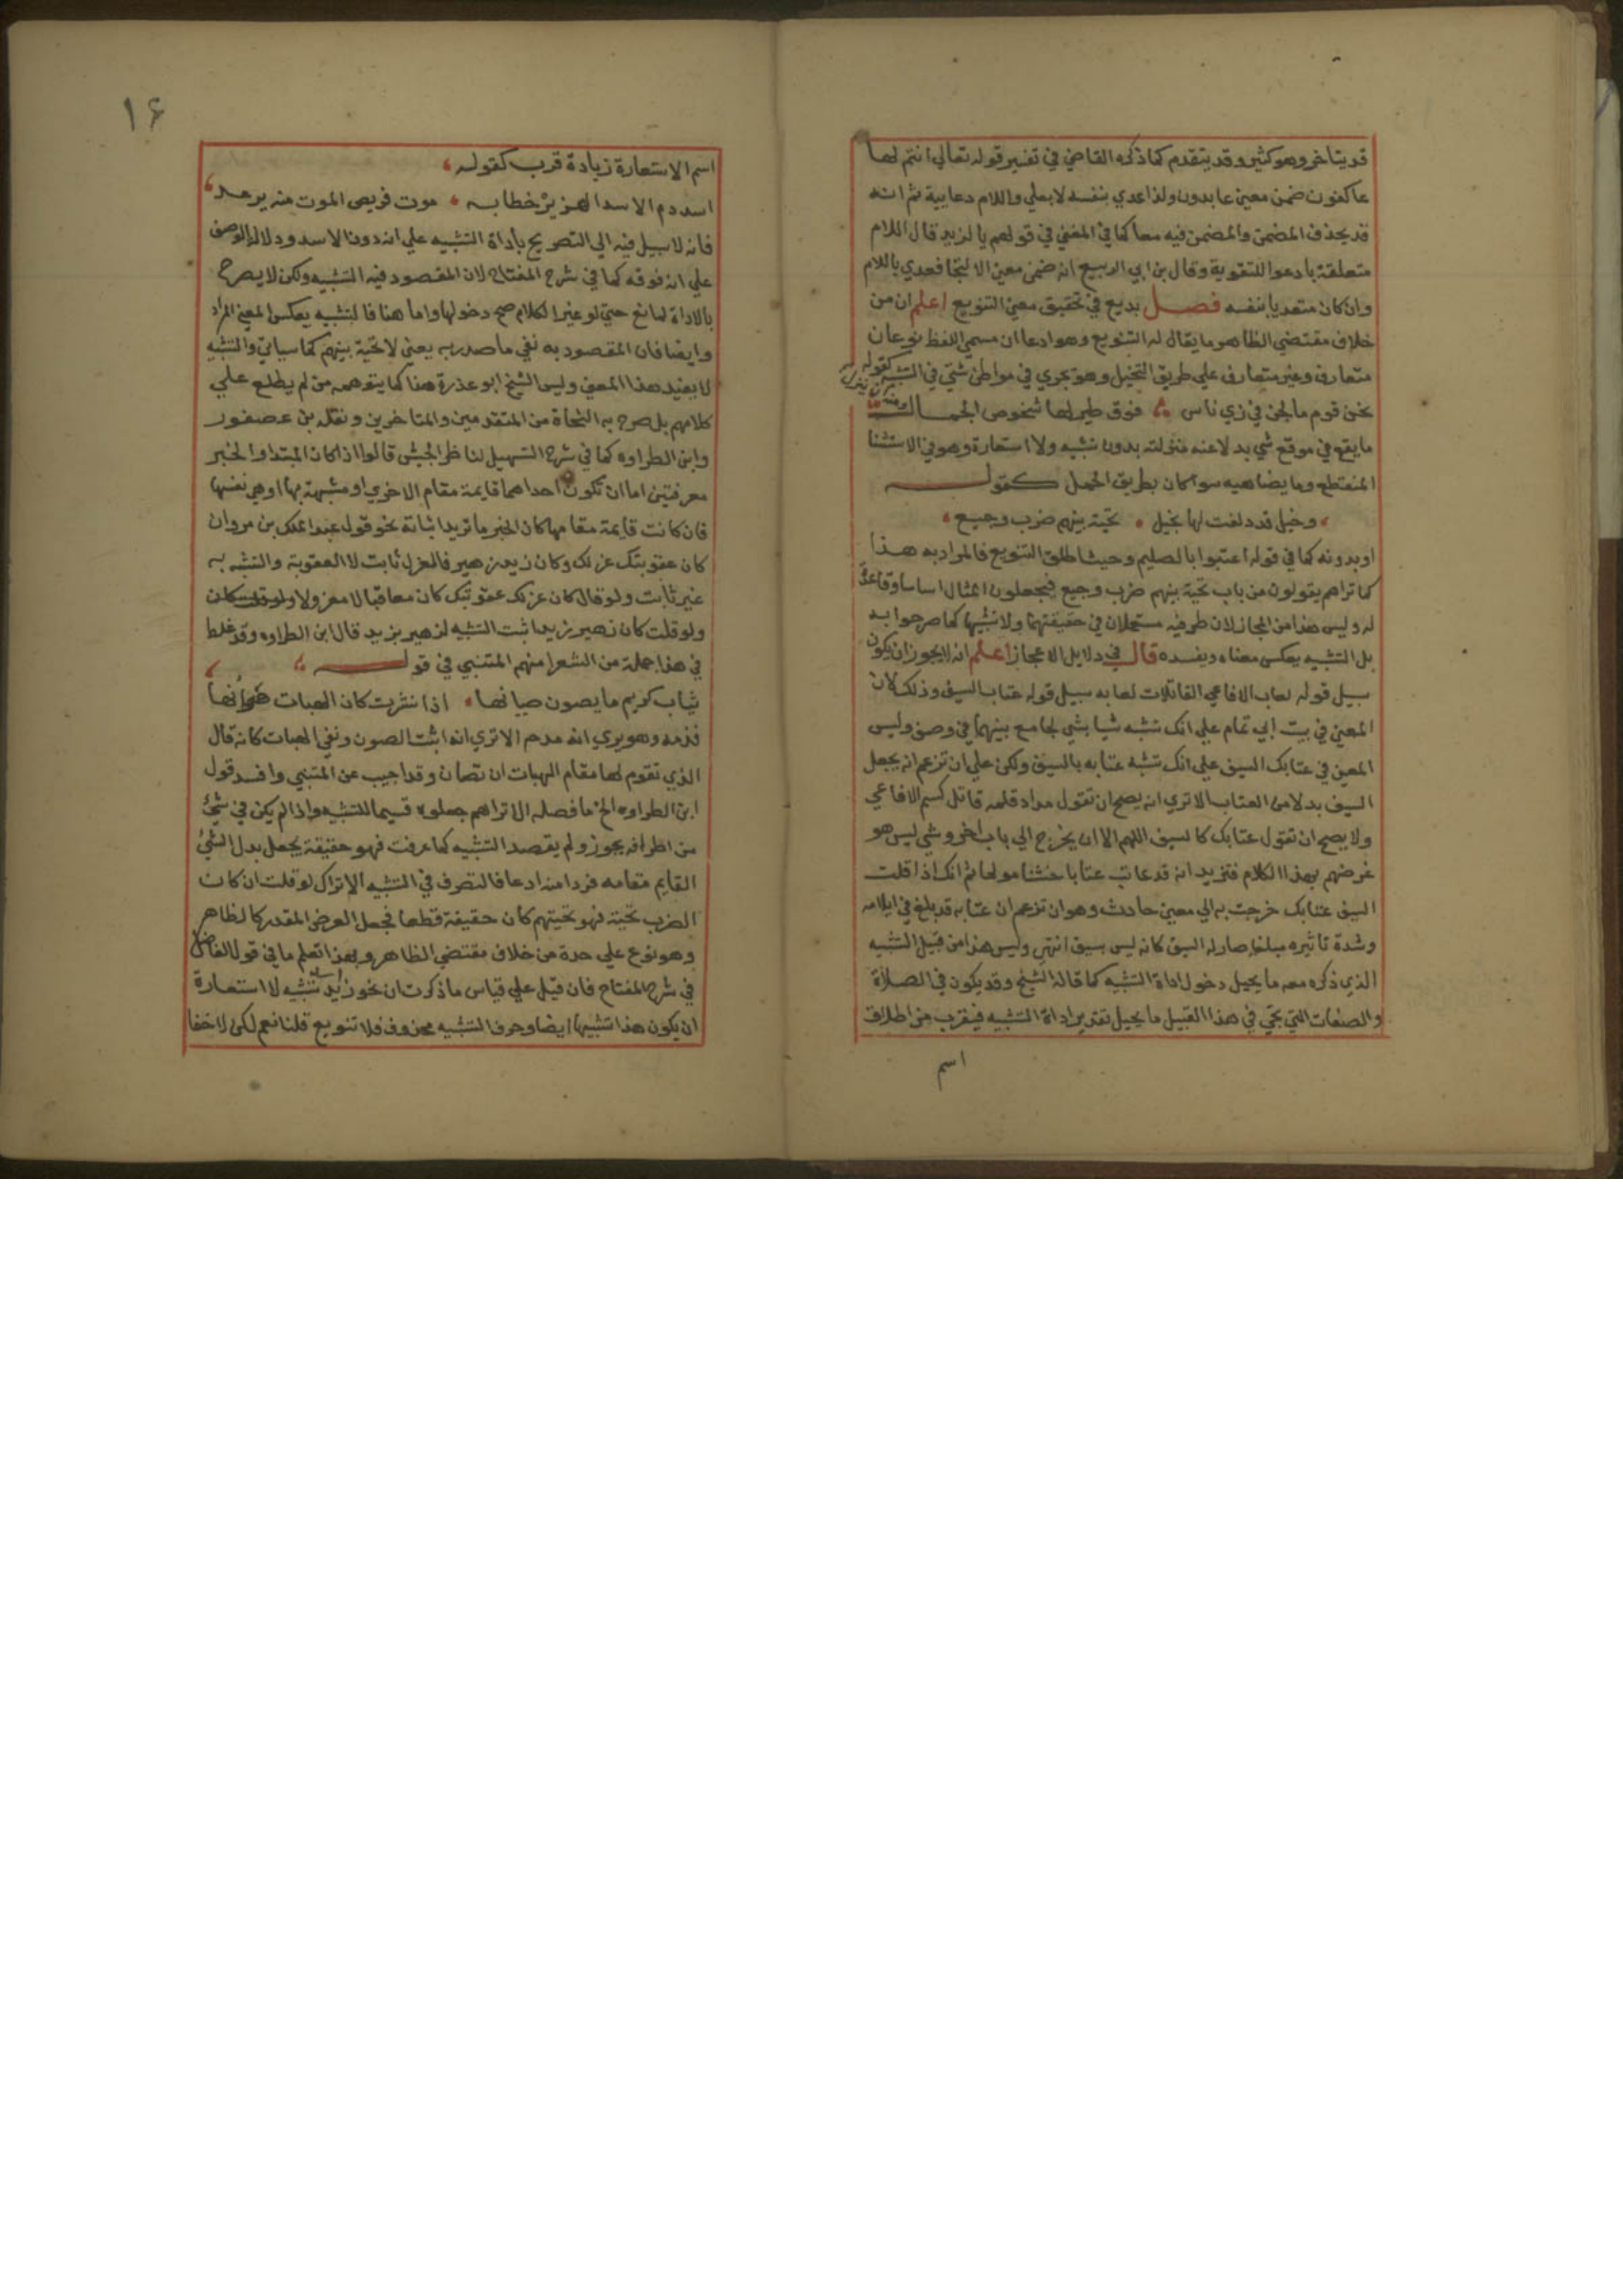 قد يتاخر وهو كثير وقد يتقدم كما ذكره القاضي في تفسير قوله تعالي انتم لها
عاكفون ضمن معني عابدون ولذا عدي بنفسه لا بعلي واللام دعايية ثم انه
قد يحذف المضمن والمضمن فيه معا كما في المغني في قولهم يا لزيد قال اللام
متعلقة بادعوا للتقوية وقال بن ابي الربيع انه ضمن معني الالتجا فعدي باللام
وان كان متعديا بنفسه فصل بديع في تحقيق معني التنويع اعلم ان من
خلاف مقتضي الظاهر ما يقال له التنويع وهو ادعا ان مسمي اللفظ نوعان
متعارف وغير متعارف علي طريق التخيل وهو يجري في مواطن شتي في التشبيه كقوله
نحن قوم ملجن في زي ناس فوق طير لها شخوص الجمال ومنه
ما يقع في موقع شي بدلا عنه منزلته بدون تشبيه ولا استعارة وهو في الاستثنا
المنقطع وما يضاهيه سوا كان بطريق الحمل كقوله
وخيل قد دلفت لها بخيل تحية بينهم ضرب وجيع
او بدونه كما في قوله اعتبوا بالصليم وحيث اطلق التنويع فالمراد به هذا
كما تراهم يقولون من باب تحية بينهم ضرب وجيع فيجعلون المثال اساسا وقاعدة
له وليس هذا من المجاز لان طرفيه مستعملان في حقيقتهما ولا تشبيها كما صرحوا به
بل التشبيه يعكس معناه ويفسده قال في دلايل الاعجاز اعلم انه لا يجوز ان يكون
سبيل قوله لعاب الافاعي القاتلات لعابه سبيل قوله عتابه السيف وذلك لان
المعني في بيت ابي تمام علي انك تشبه شيا بشي لجامع بينهما في وصف وليس
المعني في عتابك السيف علي انك تشبه عتابه بالسيف ولكن علي ان تزعم انه يجعل
السيف بدلا من العتاب الا تري انه يصح ان تقول مداد قلمه قاتل كسم الافاعي
ولا يصح ان تقول عتابك كالسيف اللهم الا ان يخرج الي باب اخر وشي ليس هو
غرضهم بهذا الكلام فتريد انه قد عاتب عتابا خشنا مولما ثم انك اذا قلت
السيف عتابك خرجت به الي معني حادث وهو ان تزعم ان عتابه قد بلغ في ايلامه
وشدة تاثيره مبلغا صار له السيف كانه ليس بسيف انتهي وليس هذا من قبيل التشبيه
الذي ذكره معه ما يحيل دخول اداة التشبيه كما قاله الشيخ وقد يكون في الصلاة
والصفات التي تجي في هذا القبيل ما يحيل تقدير اداة التشبيه فيقرب من اطلاق
اسم
١٤
اسم الاستعارة زيادة قرب كقوله
اسد دم الاسد الهزبر خطابه موت فريص الموت منه يرعد
فانه لا سبيل فيه الي التصريح باداة التشبيه علي انه دون الاسد ودلالة الوصف
علي انه فوقه كما في شرح المفتاح لان المقصود فيه التشبيه ولكن لا يصرح
بالاداة لمانع حتي لو غير الكلام صح دخولها واما هنا فالتشبيه يعكس المعني المراد
وايضا فان المقصود به نفي ما صدر به يعني لا تحية بينهم كما سياتي والتشبيه
لا يفيد هذا المعني وليس الشيخ ابو عذرة هذا كما يتوهمه من لم يطلع علي
كلامهم بل صرح به النحاة من المتقدمين والمتاخرين ونقله بن عصفور
وابن الطراوه كما في شرح التسهيل لناظر الجيش قالوا اذا كان المبتدا والخبر
معرفتين اما ان تكون احداهما قايمة مقام الاخري او مشبهة بها او هي نفسها
فان كانت قايمة مقامها كان الخبر ما تريد اثباته نحو قول عبد الملك بن مروان
كان عقوبتك عزلك وكان زيد زهير فالعزل ثابت لا العقوبة والتشبه به
غير ثابت ولو قال كان عزلك عقوبتك كان معاقبا لا معزولا
ولو قلت كان زهير زيدا ثبت التشبيه لزهير بزيد قال ابن الطراوه وقد غلط
في هذا جملة من الشعرا منهم المتنبي في قوله
ثياب كريم ما يصون حسانها اذا نشرت كان الهبات صوانها
فذمه وهو يري انه مدحه الا تري انه اثبت الصون ونفي الهبات كانه قال
الذي تقوم لها مقام الهبات ان تصان وقد اجيب عن المتنبي وافسد قول
ابن الطراوه الخ ما فصله الا تراهم جعلوه قسيما للتشبيه واذا لم يكن في شئ
من اطرافه يجوز ولم يقصد التشبيه كما عرفت فهو حقيقة يجعل بدل الشئ
القايم مقامه فردا منه ادعا فالتصرف في التشبيه الا تراك لو قلت ان كان
الضرب تحية فهو تحيتهم كان حقيقة قطعا فجعل الفرض المقدر كالظاهر
وهو نوع علي حدة من خلاف مقتضي الظاهر وبهذا تعلم ما في قول الفاضل
في شرح المفتاح فان قيل علي قياس ما ذكرت ان نحو زيد اسد تشبيه لا استعارة
ان يكون هذا تشبيها ايضا وحرف التشبيه محذوف فلا تنويع قلنا نعم لكن لا خفا